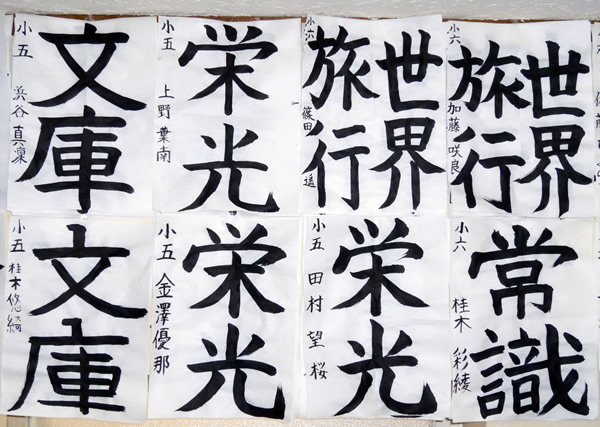 文庫
小五
浜谷真凜
栄光
小五
上野葉南
世界
旅行
小六
篠田遥
世界
旅行
小六
加藤咲良
文庫
小五
桂木悠綺
栄光
小五
金澤優那
栄光
小五
田村望桜
常識
小六
桂木彩綾